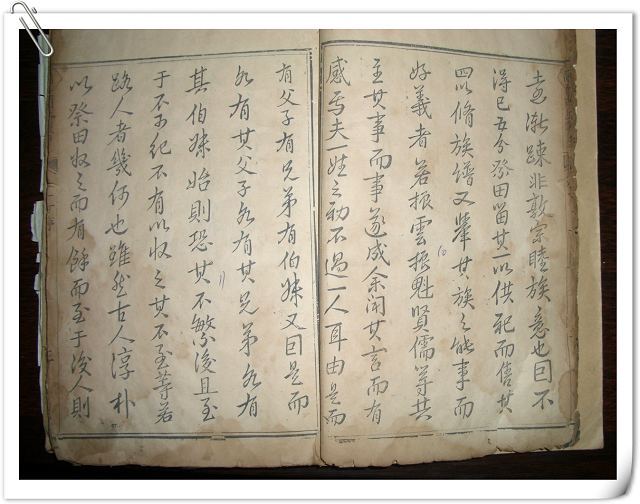 遠漸疎非敦宗睦族意也因不
得已乃分祭田留其一以供祀而售其
四以脩族譜又舉其族之能事而
好義者若振雲振魁賢儒等共
主其事而事遂成余聞其言而有
感焉夫一姓之初不過一人耳由是而
有父子有兄弟有伯叔又因是而
各有其父子各有其兄弟各有
其伯叔始則恐其不繁後且至
于不可紀不有以收之其不至等若
路人者幾何也雖然古人淳朴
以祭田收之而有餘而至于後人則